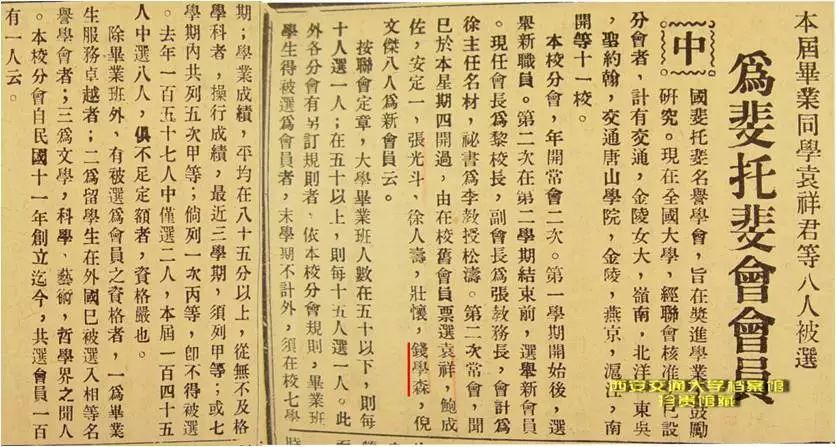 本屆畢業同學袁祥君等八人被選
為斐托斐會會員
中
國斐托斐名譽學會,旨在獎進學業及鼓勵
研究。現在全國大學,經聯會核准已設
分會者,計有交通,金陵女大,嶺南,北洋,東吳
,聖約翰,交通唐山學院,金陵,燕京,滬江,南
開等十一校。
本校分會,年開常會二次。第一學期開始後,選
舉新職員。第二次在第二學期結束前,選舉新會員
。現任會長為黎校長,副會長為張教務長,會計為
徐主任名材,祕書為李教授松濤。第二次常會,聞
已於本星期四開過,由在校舊會員票選袁祥,鮑成
佐,安定一,張光斗,徐人壽,壯懷,錢學森,倪
文傑八人為新會員云。
按聯會定章,大學畢業班人數在五十以下,則每
十人選一人;在五十以上,則每十五人選一人。此
外各分會有另訂規則者,依本校分會規則,畢業班
學生得被選為會員者,末學期不計外,須在校七學
期;學業成績,平均在八十五分以上,從無不及格
學科者,操行成績,最近三學期,須列甲等;或七
學期內共列五次甲等;倘列一次丙等,卽不得被選
。去年一百五十七人中僅選二人,本屆一百四十五
人中選八人,俱不足定額者,資格嚴也。
除畢業班外,有被選為會員之資格者,一為畢業
生服務卓越者;二為留學生在外國已被選入相等名
譽學會者;三為文學,科學,藝術,哲學界之聞人
。本校分會自民國十一年創立迄今,共選會員一百
有一人云。
西安交通大学档案馆
珍贵馆藏